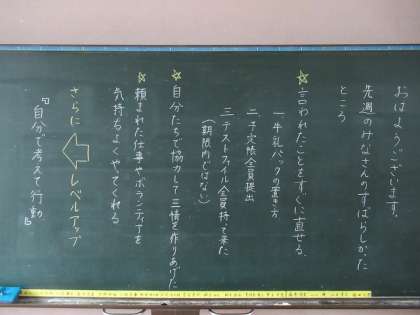 おはようございます。
先週のみなさんのすばらしかった
ところ
☆言われたことをすぐに直せる。
一 牛乳パックの置き方
二 予定帳全員提出
三 テストファイル全員持って来た
(期限内ではない)
☆自分たちで協力して三情を作りあげた
☆頼まれた仕事やボランティアを
気持ちよくやってくれる
さらに レベルアップ
『自分で考えて行動』